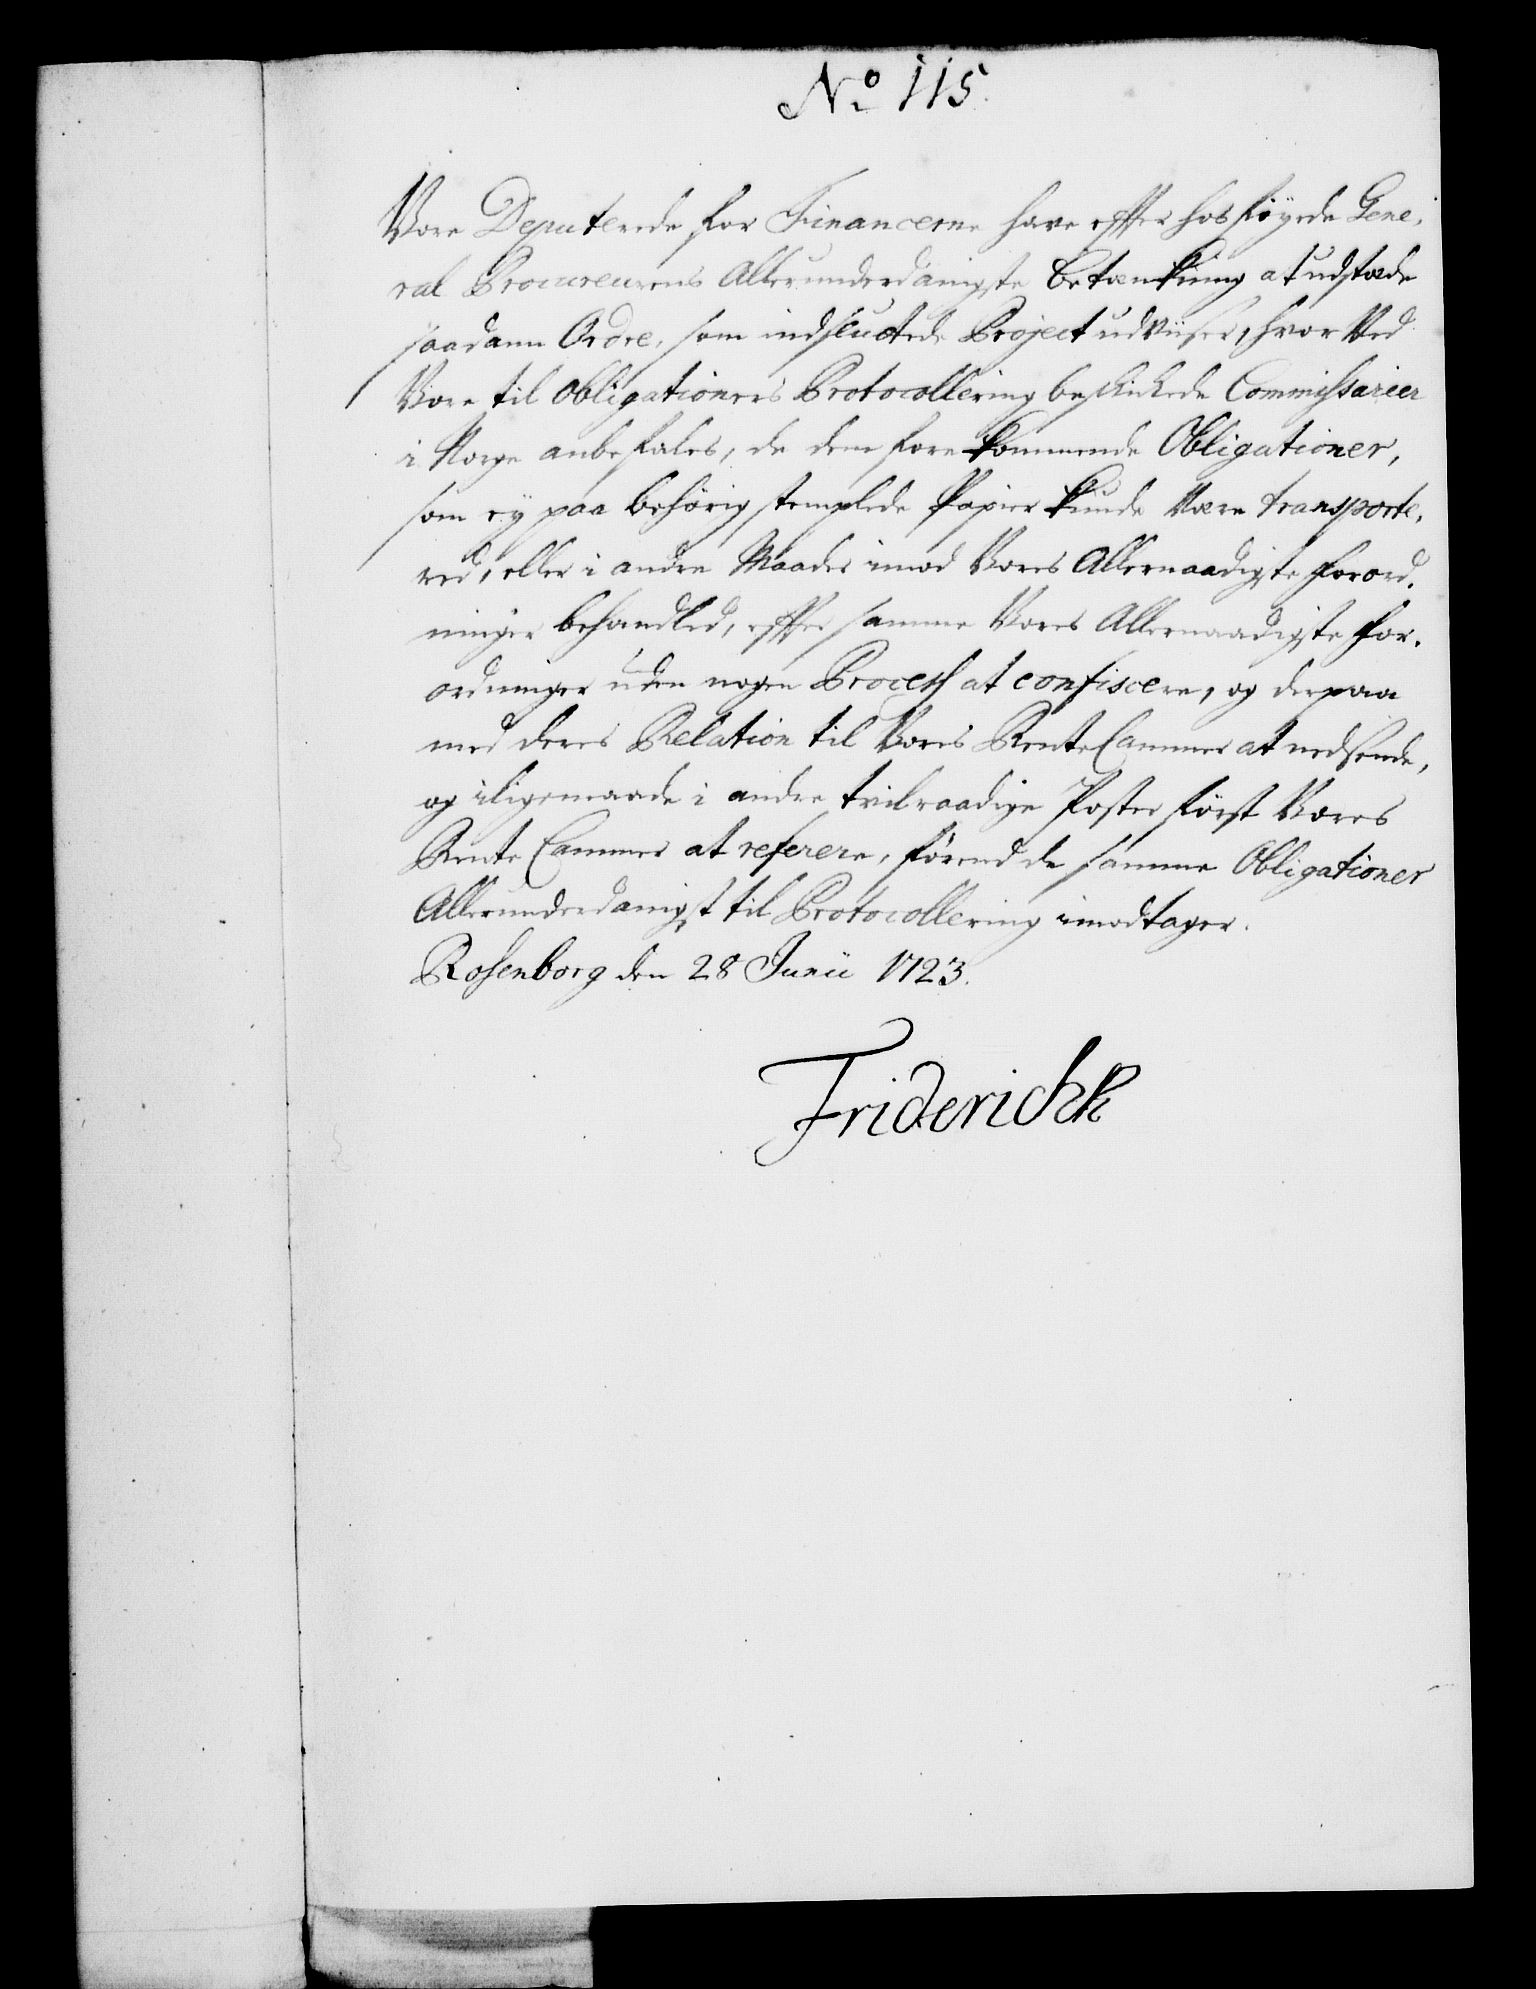 No 115.
Vore Deputerede for Financerne have efter hosføyede Gene-
ral Procureurens Allerunderdanigste Betænkning at udstæde
saadann Ordre, som indsluctede Project udviiser, hvor Ved
Vore til Obligationers Protocollering beskickede Commissarier
i Norge anbefales, de dem forekommende Obligationer,
som ey paa behörig stemplede Papier kunde være transporte-
red, eller i andre Maader imod Vores Allernaadigste forord-
ninger behandled, efter samme Vores Allernaadigste for-
ordninger uden nogen Process at confiscere, og derpaa
med deres Relation til Voris RenteCammer at nedsende,
og iligemaade i andre tvilraadige Poster först Vores
Rente Cammer at referere, förend de samme Obligationer
Allerunderdanigst til Protocollering imodtager.
Rosenborg den 28 Junii 1723.
Friderich R